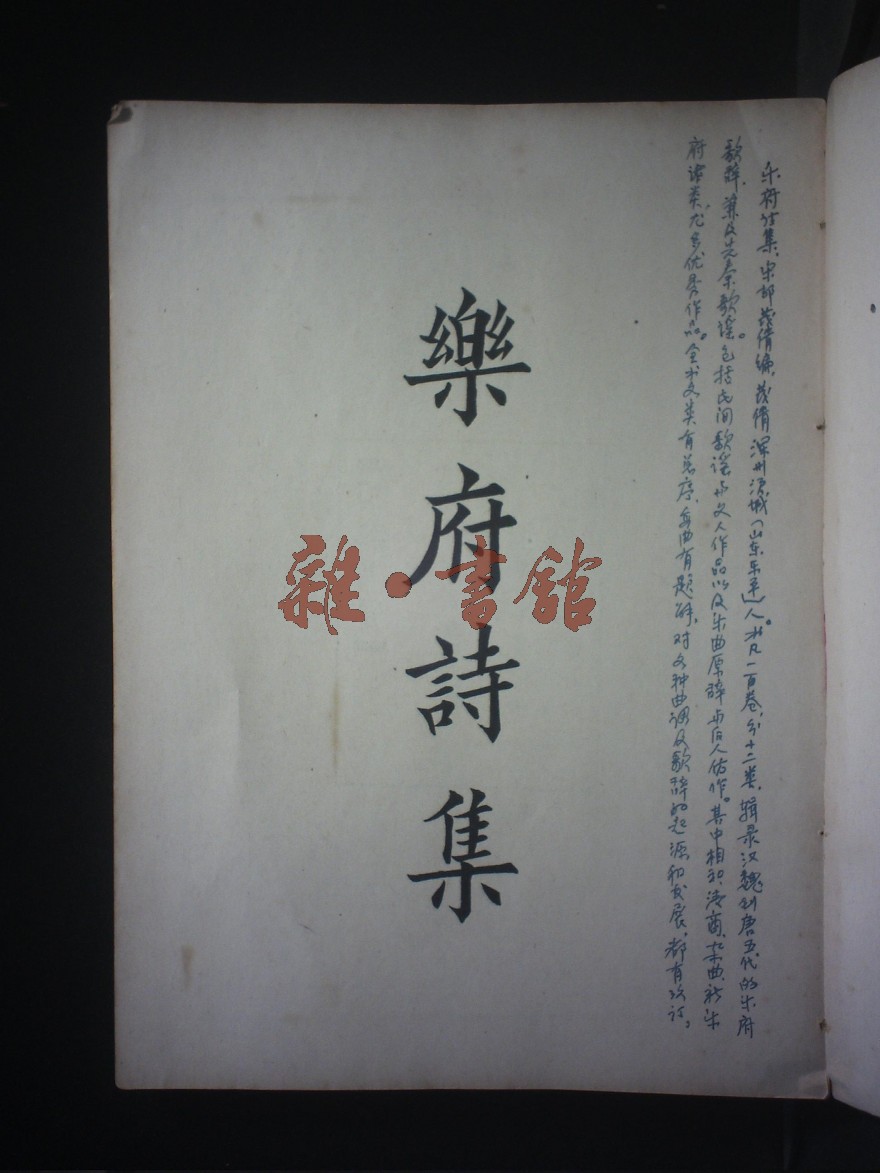 乐府诗集、宋郭茂倩编、茂倩渾州须城(山东东平)人。书凡一百卷，分十二类，辑录汉魏到唐五代的乐府
歌辞，兼及先秦歌谣。包括民间歌谣与文人作品以及乐曲原辞与后人仿作。其中相和、清商、杂曲、新乐
府诸类，尤多优秀作品。全书各类有总序，每曲有题解，对各种曲调及歌辞的起源和发展，都有考订。
樂府詩集
雜·書館